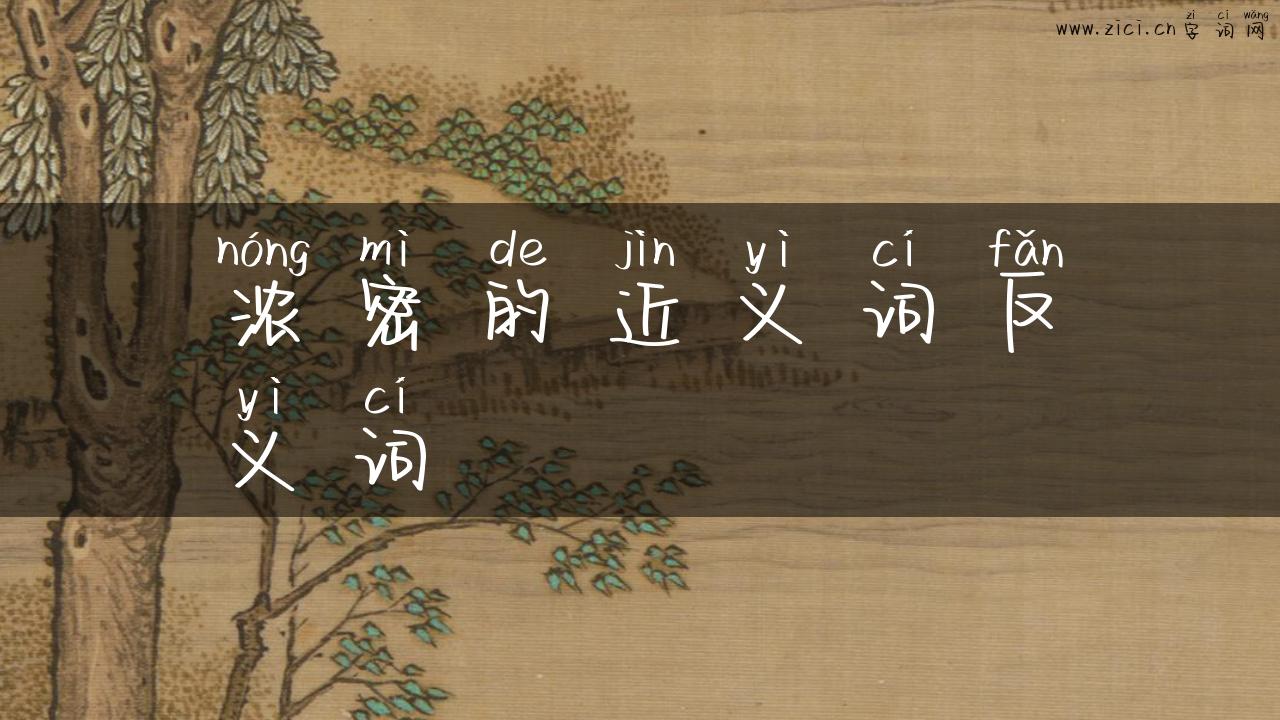 zì cí wǎng
www.zici.cn 字词网
nóng mì de jìn yì cí fǎn
浓密的近义词反
yì cí
义词